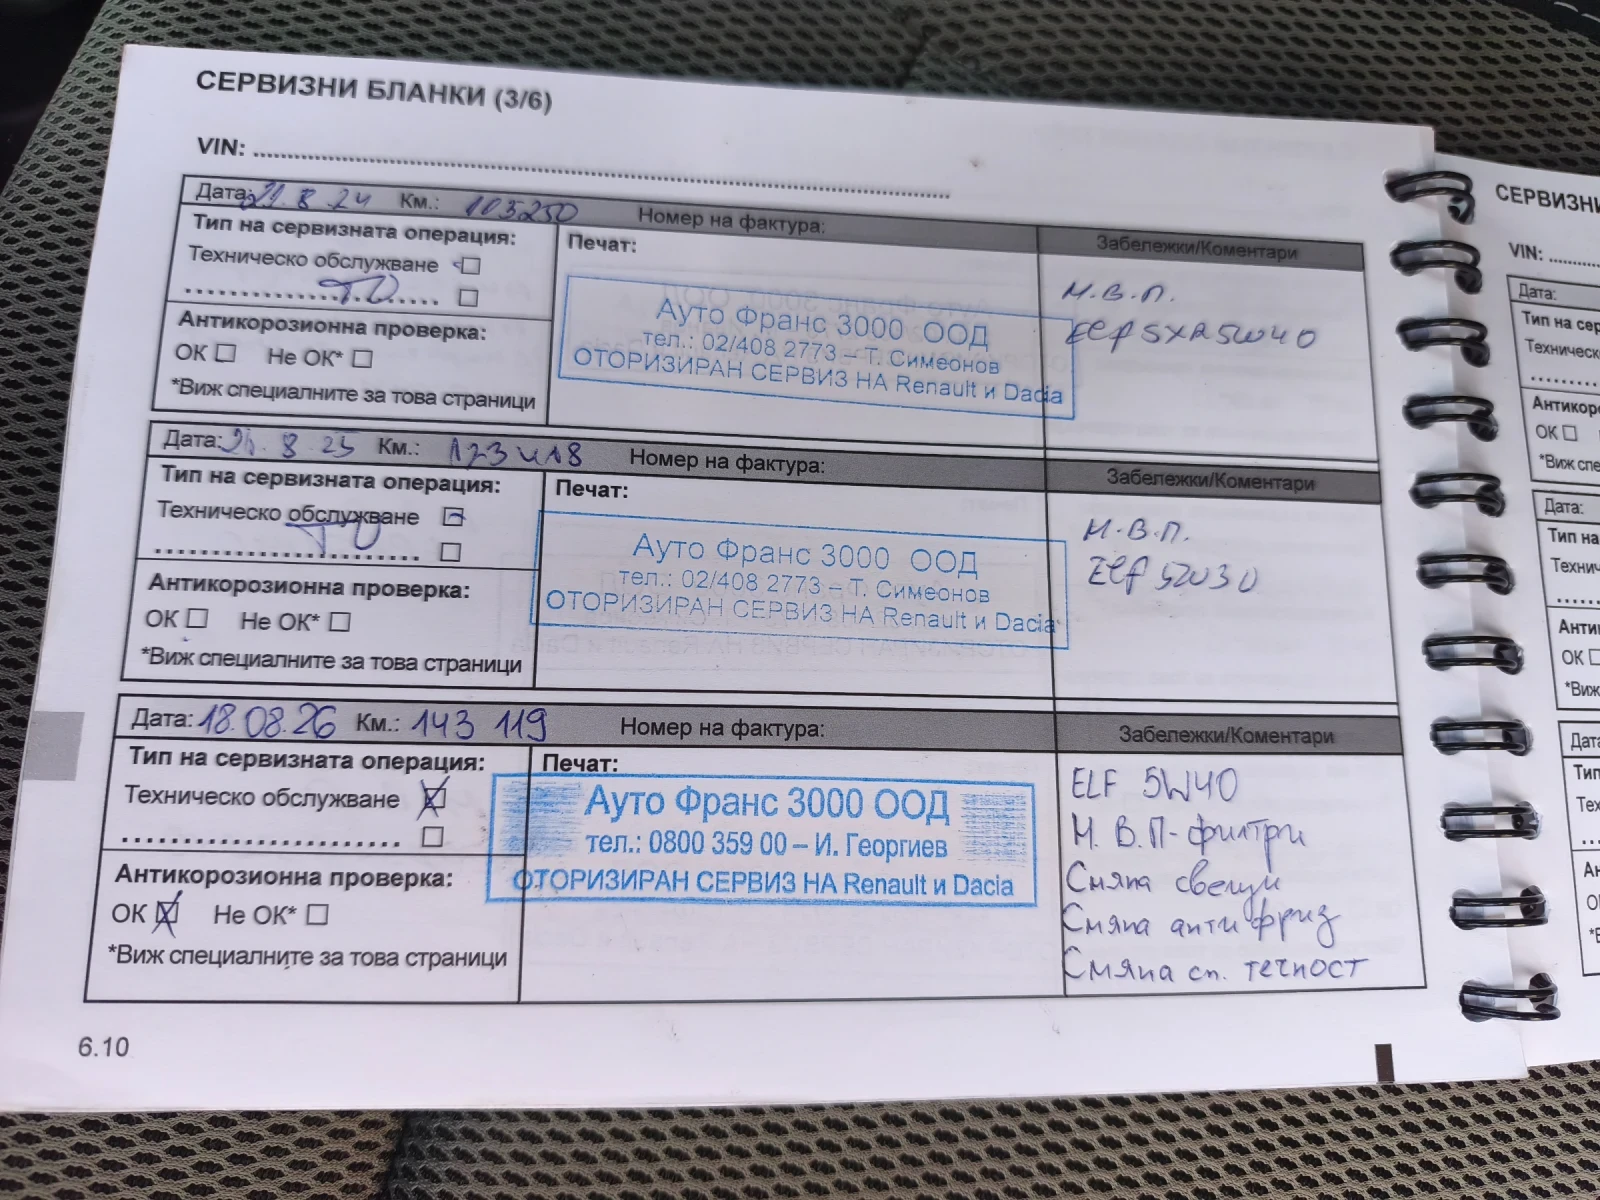 СЕРВИЗНИ БЛАНКИ (3/6)
VIN: ..........
Дата: 21.8.24 Км.: 103250 Номер на фактура:
Забележки/Коментари
Тип на сервизната операция:
Техническо обслужване
ТО
Антикорозионна проверка:
ОК Не ОК*
*Виж специалните за това страници
Печат:
Ауто Франс 3000 ООД
тел.: 02/408 2773 – Т. Симеонов
ОТОРИЗИРАН СЕРВИЗ НА Renault и Dacia
М.В.П.
Elf SXR 5W40
Дата: 21.8.25 Км.: 123418 Номер на фактура:
Забележки/Коментари
Тип на сервизната операция:
Техническо обслужване
ТО
Антикорозионна проверка:
ОК Не ОК*
*Виж специалните за това страници
Печат:
Ауто Франс 3000 ООД
тел.: 02/408 2773 – Т. Симеонов
ОТОРИЗИРАН СЕРВИЗ НА Renault и Dacia
М.В.П.
Elf 5W30
Дата: 18.08.26 Км.: 143 119 Номер на фактура:
Забележки/Коментари
Тип на сервизната операция:
Техническо обслужване
Антикорозионна проверка:
ОК Не ОК*
*Виж специалните за това страници
Печат:
Ауто Франс 3000 ООД
тел.: 0800 359 00 – И. Георгиев
ОТОРИЗИРАН СЕРВИЗ НА Renault и Dacia
ELF 5W40
М. В. П-филтри
Смяна свещи
Смяна антифриз
Смяна сп. течност
6.10
VIN: ..........
Дата:
ОК
Дата:
ОК